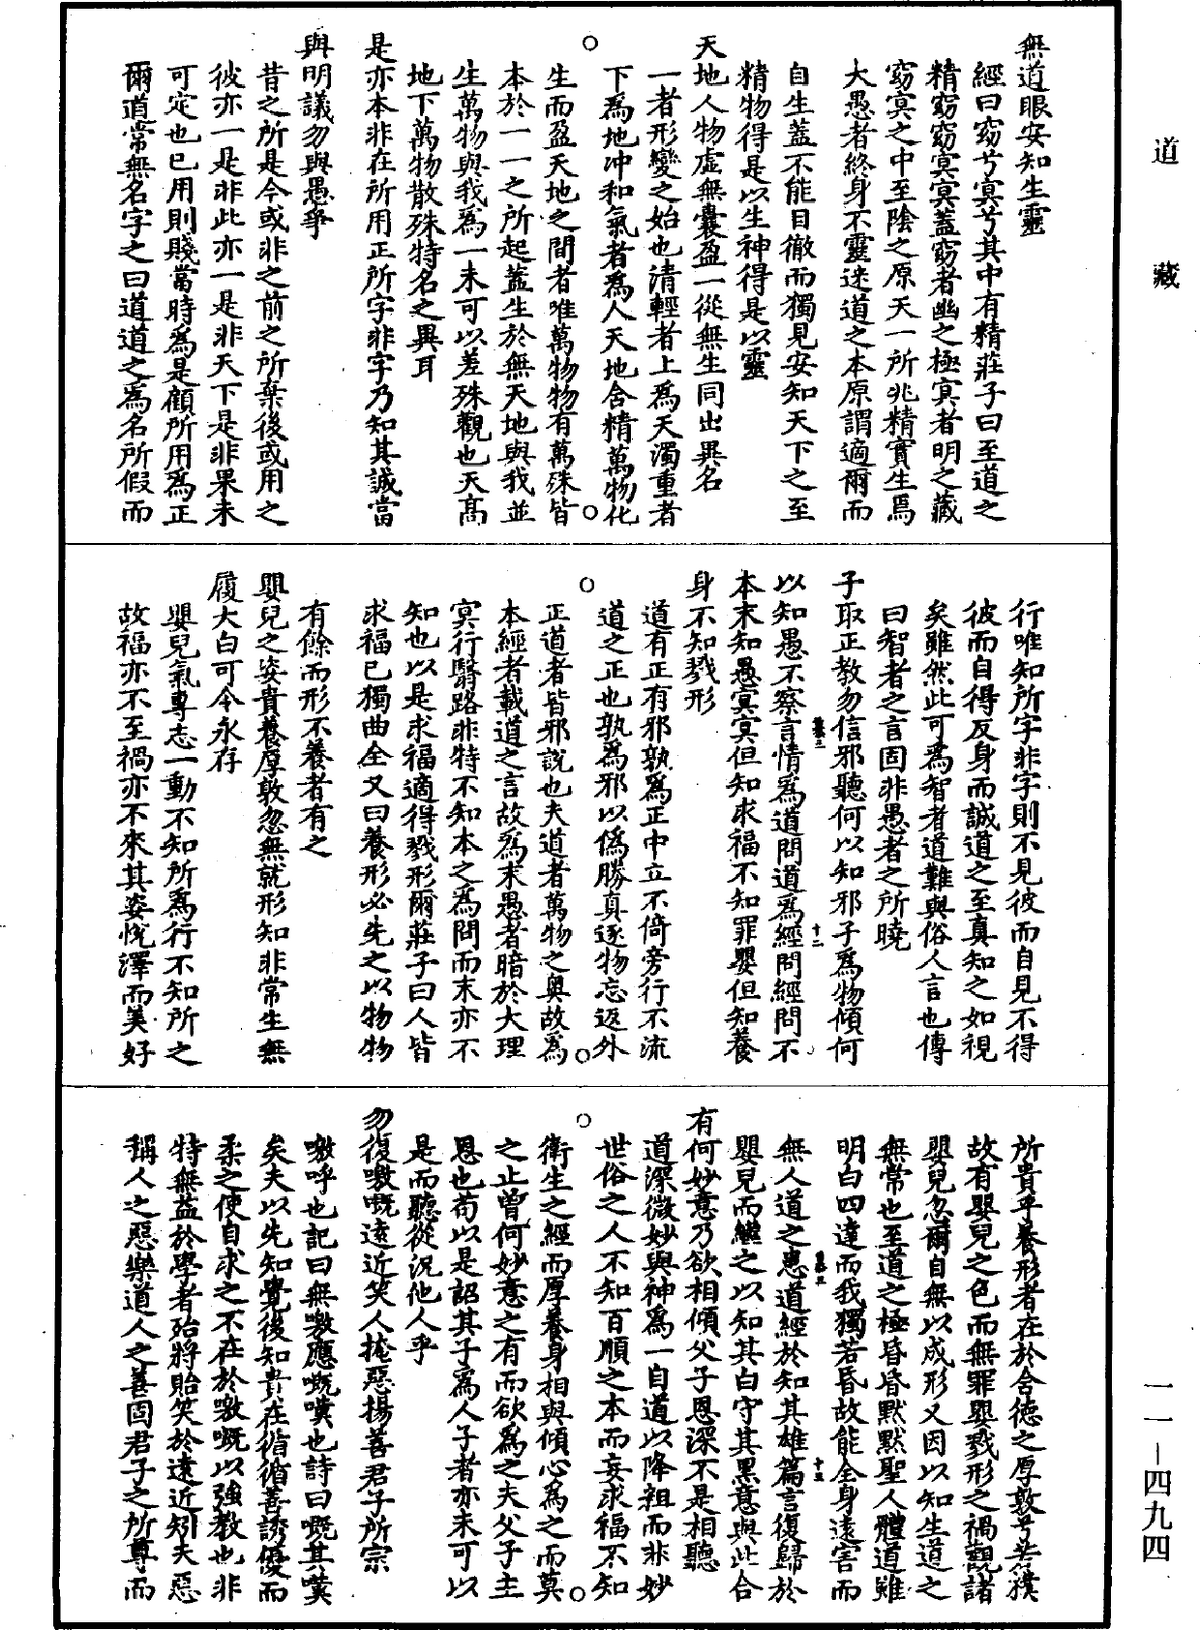 道藏
無道眼安知生靈
經曰窈兮冥兮其中有精莊子曰至道之
精窈窈冥冥蓋窈者幽之極冥者明之藏
窈冥之中至陰之原天一所兆精實生焉
大愚者終身不靈迷道之本原謂適爾而
自生蓋不能目徹而獨見安知天下之至
精物得是以生神得是以靈
天地人物虛無囊盈一從無生同出異名
一者形變之始也清輕者上爲天濁重者
下爲地冲和氣者爲人天地含精萬物化
生而盈天地之間者唯萬物物有萬殊皆
本於一一之所起蓋生於無天地與我並
生萬物與我爲一未可以差殊觀也天髙
地下萬物散殊特名之異耳
是亦本非在所用正所字非字乃知其誠當
與明議勿與愚爭
昔之所是今或非之前之所棄後或用之
彼亦一是非此亦一是非天下是非果未
可定也已用則賤當時爲是顧所用爲正
爾道常無名字之曰道道之爲名所假而
行唯知所字非字則不見彼而自見不得
彼而自得反身而誠道之至真知之如視
矣雖然此可爲智者道難與俗人言也傳
曰智者之言固非愚者之所曉
子取正教勿信邪聽何以知邪子爲物傾何
以知愚不察言情爲道問道爲經問經問不
本末知愚冥冥但知求福不知罪嬰但知養
身不知戮形
道有正有邪孰爲正中立不倚旁行不流
道之正也孰爲邪以僞勝真逐物忘返外
正道者皆邪說也夫道者萬物之奥故爲
本經者載道之言故爲末愚者暗於大理
冥行翳路非特不知本之爲問而末亦不
知也以是求福適得戮形爾莊子曰人皆
求福已獨曲全又曰養形必先之以物物
有餘而形不養者有之
嬰兒之姿貴養厚敦忽無就形知非常生無
履大白可令永存
嬰兒氣專志一動不知所爲行不知所之
故福亦不至禍亦不來其姿悅澤而美好
所貴乎養形者在於含德之厚敦兮若樸
故有嬰兒之色而無罪嬰戮形之禍觀諸
嬰兒忽爾自無以成形又因以知生道之
無常也至道之極昏昏默默聖人體道雖
明白四達而我獨若昏故能全身遠害而
無人道之患道經於知其雄篇言復歸於
嬰兒而繼之以知其白守其黑意與此合
有何妙意乃欲相傾父子恩深不是相聽
道深微妙與神爲一自道以降粗而非妙
世俗之人不知百順之本而妄求福不知
衛生之經而厚養身相與傾心爲之而莫
之止曽何妙意之有而欲爲之夫父子主
恩也苟以是詔其子爲人子者亦未可以
是而聽從況他人乎
勿復噭嘅遠近笑人掩惡揚善君子所宗
噭呼也記曰無噭應嘅嘆也詩曰嘅其嘆
矣夫以先知覺後知貴在循循善誘優而
柔之使自求之不在於噭嘅以強教也非
特無益於學者殆將貽笑於遠近矧夫惡
稱人之惡樂道人之善固君子之所尊而
一一—四九四